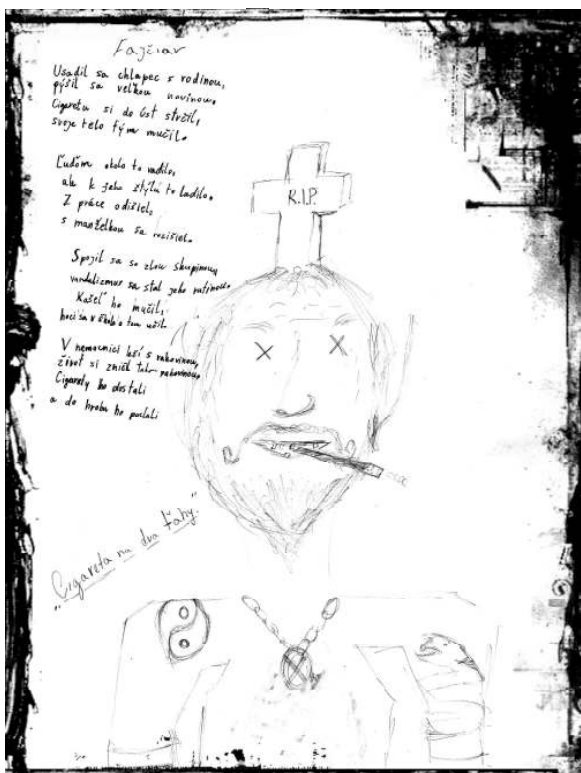 Fajčiar
Usadil sa chlapec s rodinou,
pýšil sa veľkou novinou.
Cigaretu si do úst strčil,
svoje telo tým mučil.
Ľuďom okolo to vadilo,
ale k jeho štýlu to ladilo.
Z práce odišiel,
s manželkou sa rozišiel.
Spojil sa so zlou skupinou,
vandalizmus sa stal jeho rutinou.
Kašeľ ho mučil,
hoci sa v škole o tom učil.
V nemocnici leží s rakovinou,
život si zničil
Cigarety ho dostali
a do hrobu ho poslali
R.I.P.
"Cigareta na dva ťahy"